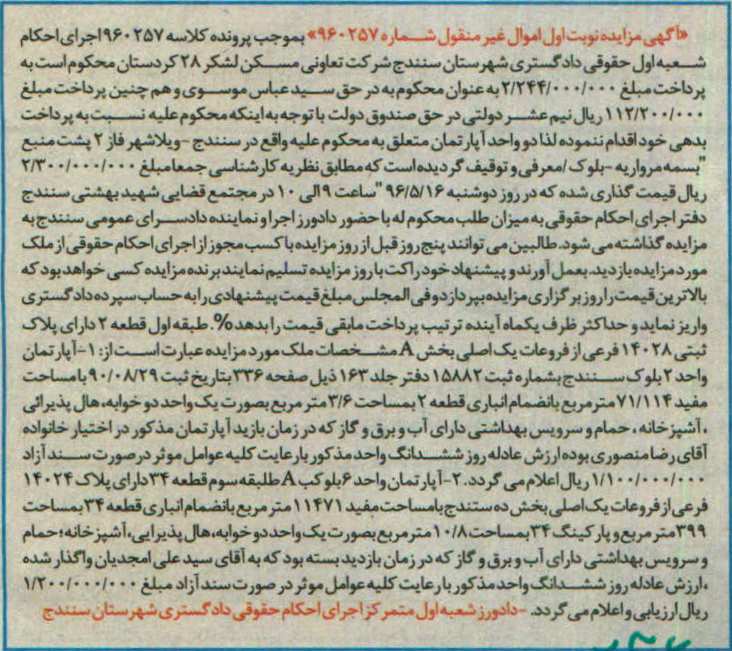 «آگهی مزایده نوبت اول اموال غیر منقول شماره ۹۶۰۲۵۷» بموجب پرونده کلاسه ۹۶۰۲۵۷ اجرای احکام
شعبه اول حقوقی دادگستری شهرستان سنندج شرکت تعاونی مسکن لشکر ۲۸ کردستان محکوم است به
پرداخت مبلغ ۲/۲۴۴/۰۰۰/۰۰۰ به عنوان محکوم به در حق سید عباس موسوی و هم چنین پرداخت مبلغ
۱۱۲/۲۰۰/۰۰۰ ریال نیم عشر دولتی در حق صندوق دولت با توجه به اینکه محکوم علیه نسبت به پرداخت
بدهی خود اقدام ننموده لذا دو واحد آپارتمان متعلق به محکوم علیه واقع در سنندج -ویلاشهر فاز ۲ پشت منبع
"بسمه مرواریه -بلوک /معرفی و توقیف گردیده است که مطابق نظریه کارشناسی جمعا مبلغ ۲/۳۰۰/۰۰۰/۰۰۰
ریال قیمت گذاری شده که در روز دوشنبه ۹۶/۵/۱۶ "ساعت ۹ الی ۱۰ در مجتمع قضایی شهید بهشتی سنندج
دفتر اجرای احکام حقوقی به میزان طلب محکوم له با حضور دادورز اجرا و نماینده دادسرای عمومی سنندج به
مزایده گذاشته می شود. طالبین می توانند پنج روز قبل از روز مزایده با کسب مجوز از اجرای احکام حقوقی از ملک
مورد مزایده بازدید. بعمل آورند و پیشنهاد خود را کت با روز مزایده تسلیم نمایند برنده مزایده کسی خواهد بود که
بالاترین قیمت را روز برگزاری مزایده بپردازد و فی المجلس مبلغ قیمت پیشنهادی را به حساب سپرده دادگستری
واریز نماید و حداکثر ظرف یکماه آینده ترتیب پرداخت مابقی قیمت را بدهد%. طبقه اول قطعه ۲ دارای پلاک
ثبتی ۱۴۰۲۸ فرعی از فروعات یک اصلی بخش A مشخصات ملک مورد مزایده عبارت است از: ۱-آپارتمان
واحد ۲ بلوک سنندج بشماره ثبت ۱۵۸۸۲ دفتر جلد ۱۶۳ ذیل صفحه ۳۳۶ بتاریخ ثبت ۹۰/۰۸/۲۹ با مساحت
مفید ۷۱/۱۱۴ متر مربع بانضمام انباری قطعه ۲ بمساحت ۳/۶ متر مربع بصورت یک واحد دو خوابه، هال پذیرائی
، آشپزخانه ، حمام و سرویس بهداشتی دارای آب و برق و گاز که در زمان بازید آپارتمان مذکور در اختیار خانواده
آقای رضا منصوری بوده ارزش عادله روز ششدانگ واحد مذکور با رعایت کلیه عوامل موثر در صورت سند آزاد
۱/۱۰۰/۰۰۰/۰۰۰ ریال اعلام می گردد. ۲-آپارتمان واحد ۶ بلوکب A طلبقه سوم قطعه ۳۴ دارای پلاک ۱۴۰۲۴
فرعی از فروعات یک اصلی بخش ده ستندج با مساحت مفید ۱۱۴۷۱ متر مربع بانضمام انباری قطعه ۳۴ بمساحت
۳۹۹ متر مربع و پارکینگ ۳۴ بمساحت ۱۰/۸ متر مربع بصورت یک واحد دو خوابه، هال پذیرایی، آشپزخانه؛ حمام
و سرویس بهداشتی دارای آب و برق و گاز که در زمان بازدید بسته بود که به آقای سید علی امجدیان واگذار شده
،ارزش عادله روز ششدانگ واحد مذکور با رعایت کلیه عوامل موثر در صورت سند آزاد مبلغ ۱/۲۰۰/۰۰۰/۰۰۰
ریال ارزیابی و اعلام می گردد. -دادورز شعبه اول متمرکز اجرای احکام حقوقی دادگستری شهرستان سنندج